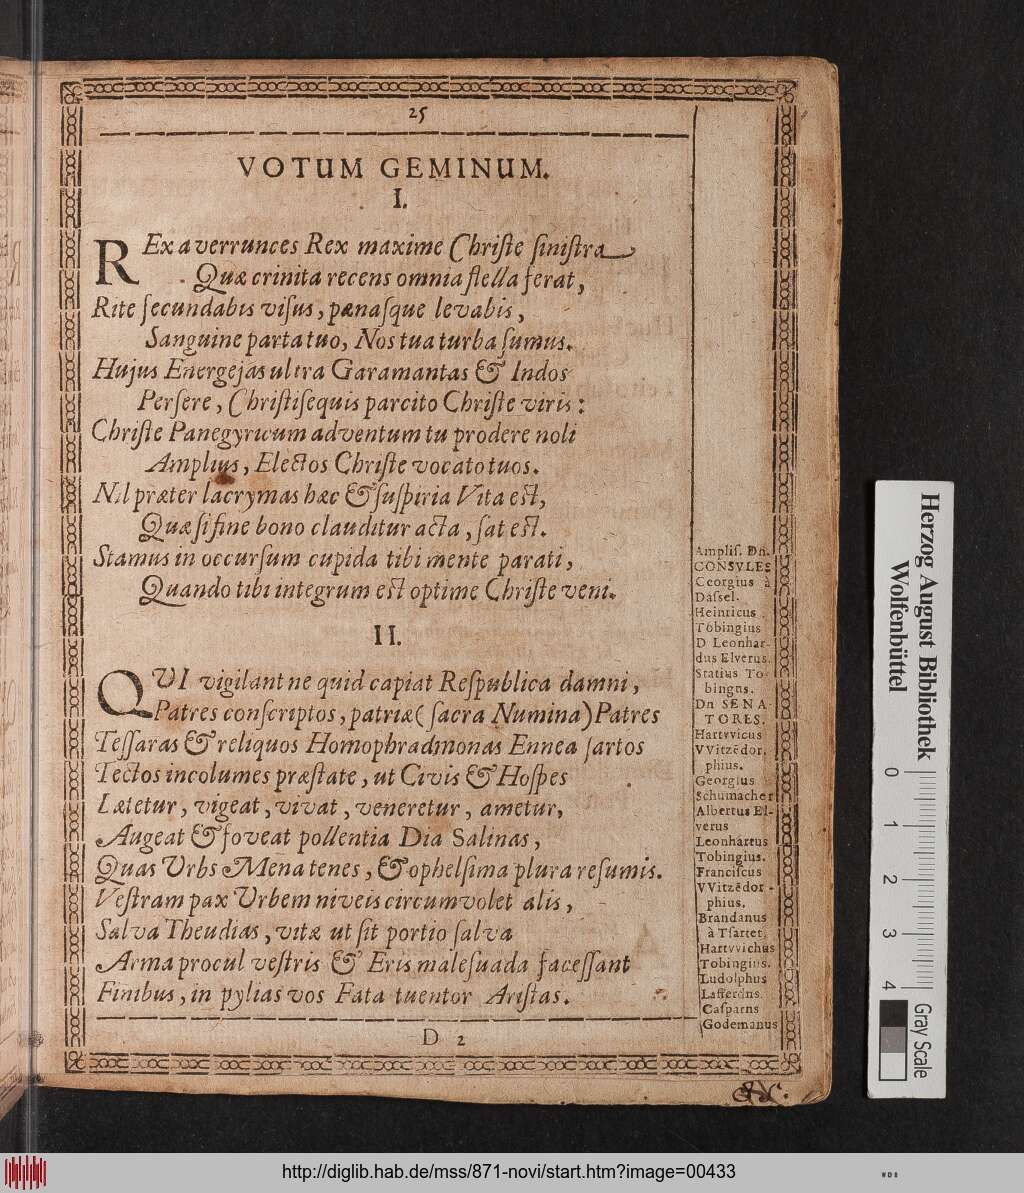 25
VOTUM GEMINUM.
I.
REx averrunces Rex maxime Christe sinistra
Quæ crinita recens omnia stella ferat,
Rite secundabis visus, pænasque levabis,
Sanguine parta tuo, Nos tua turba sumus.
Hujus Energejas ultra Garamantas & Indos
Persere, Christisequis parcito Christe viris:
Christe Panegyricum adventum tu prodere noli
Amplius, Electos Christe vocato tuos.
Nil præter lacrymas hæc & suspiria Vita est,
Quæ si fine bono clauditur acta, sat est.
Stamus in occursum cupida tibi mente parati,
Quando tibi integrum est optime Christe veni.
II.
QVI vigilant ne quid capiat Respublica damni,
Patres conscriptos, patriæ (sacra Numina) Patres
Tessaras & reliquos Homophradmonas Ennea sartos
Tectos incolumes præstate, ut Civis & Hospes
Lætetur, vigeat, vivat, veneretur, ametur,
Augeat & foveat pollentia Dia Salinas,
Quas Urbs Mena tenes, & ophelsima plura resumis.
Vestram pax Urbem niveis circumvolet alis,
Salva Theudias, vitæ ut sit portio salva
Arma procul vestris & Eris malesuada facessant
Finibus, in pylias vos Fata tuentor Aristas.
Amplis. Dn̄.
CONSVLES
Georgius à
Dassel.
Heinricus
Töbingius
D Leonhar-
dus Elverus.
Statius To-
bingus.
Dn SENA
TORES.
Hartvvicus
VVitzēdor,
phius.
Georgius
Schumacher
Albertus El-
verus
Leonhartus
Tobingius.
Franciscus
VVitzēdor-
phius.
Brandanus
à Tsartet,
Hartvvichus
Tobingius.
Ludolphus
Lafferdns.
Casparns
Godemanus
D 2
&c.
Herzog August Bibliothek
Wolfenbüttel
0 1 2 3 4
Gray Scale
http://diglib.hab.de/mss/871-novi/start.htm?image=00433
WDB